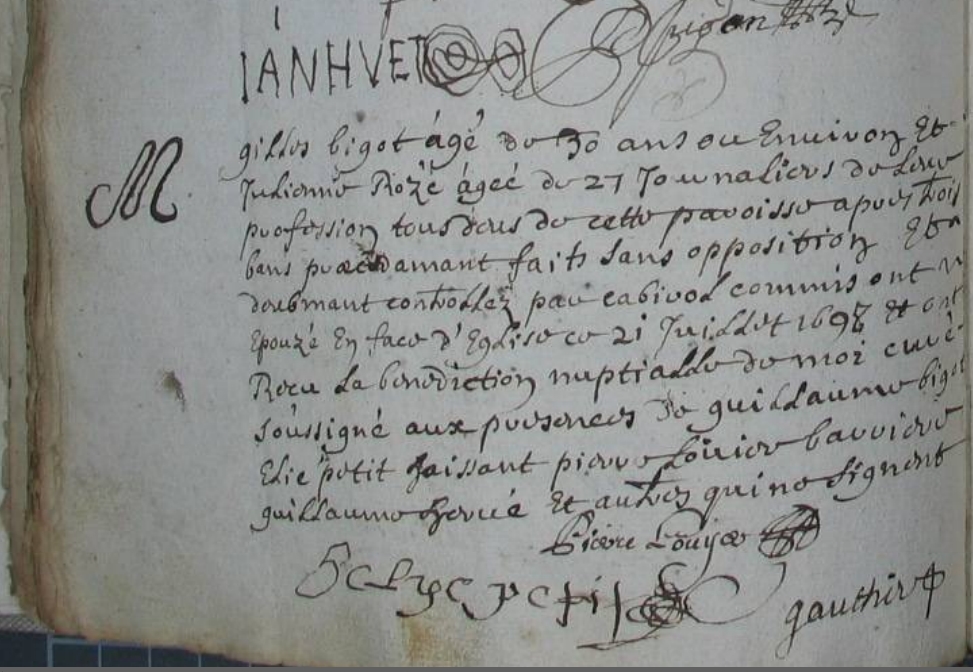 IANHVET
M
gilles bigot âgé de 30 ans ou Environ Et
Julienne Rozé âgeé de 27 Journaliers de leur
profession tous deus de cette paroisse apres trois
bans præcedamant faits sans opposition Et
deubmant controllez par commis ont
Epouzé En face d'Eglise ce 21 Juillet 1698 Et ont
Receu La benediction nuptialle de moi curé
soussigné aux presences de guillaume bigot
Elie petit pierre barriere
guillaume hervé Et autres qui ne signent
Pierre
petit
gauthier p